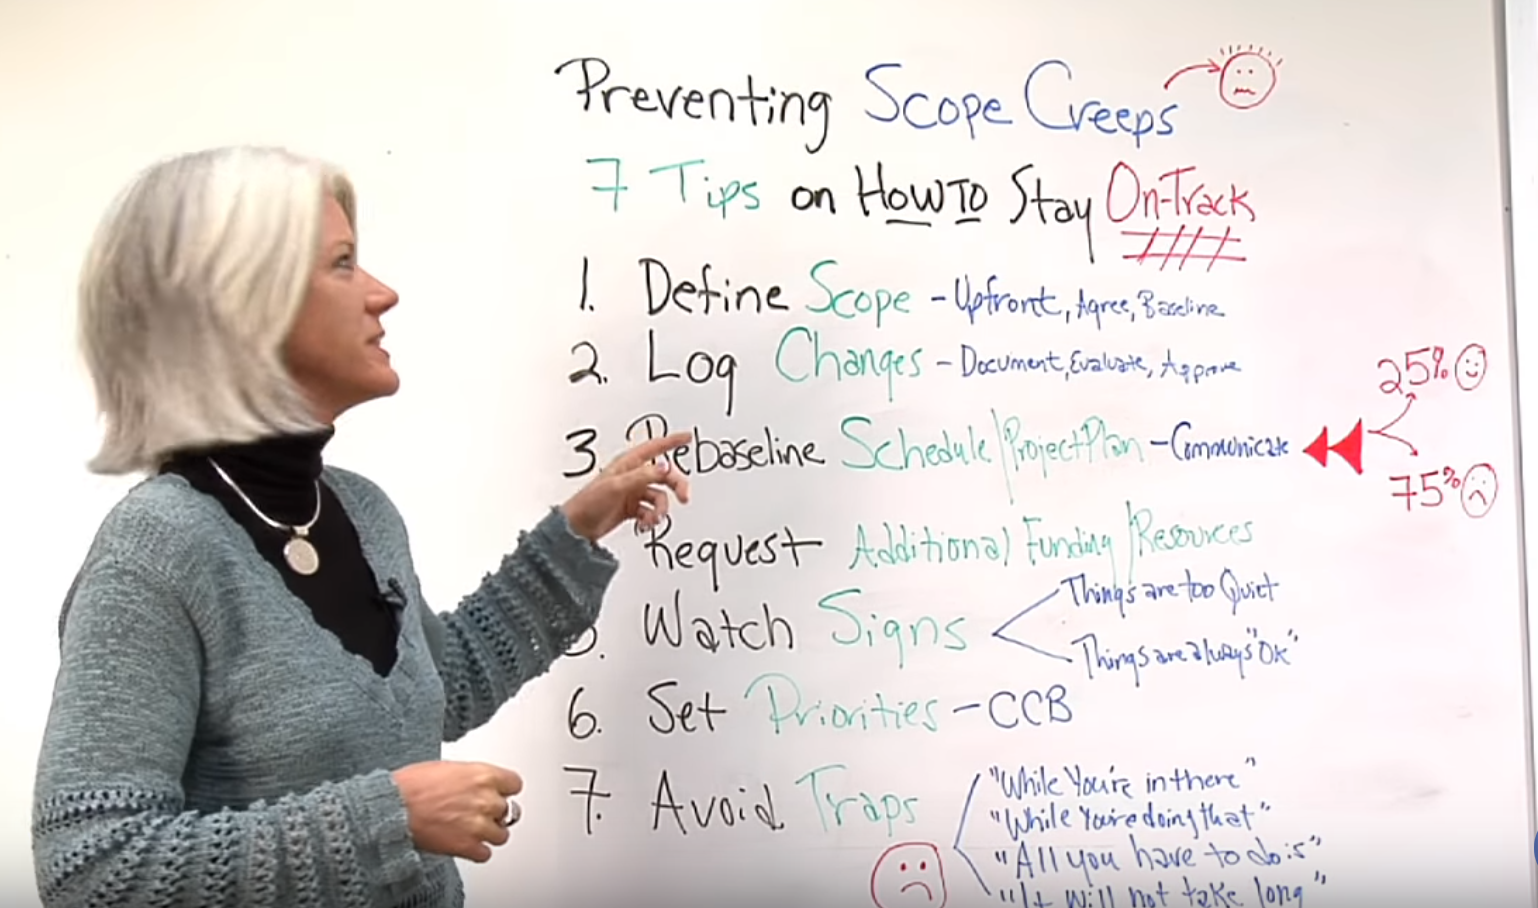 Preventing Scope Creeps
7 Tips on How To Stay On-Track
1. Define Scope - Upfront, Agree, Baseline
2. Log Changes - Document, Evaluate, Approve
25%
3. Rebaseline Schedule/Project Plan - Communicate
75%
Request Additional Funding/Resources
Things are too Quiet
5. Watch Signs
Things are always "OK"
6. Set Priorities - CCB
"While You're in there"
7. Avoid Traps
"While You're doing that"
"All you have to do is"
"It will not take long"